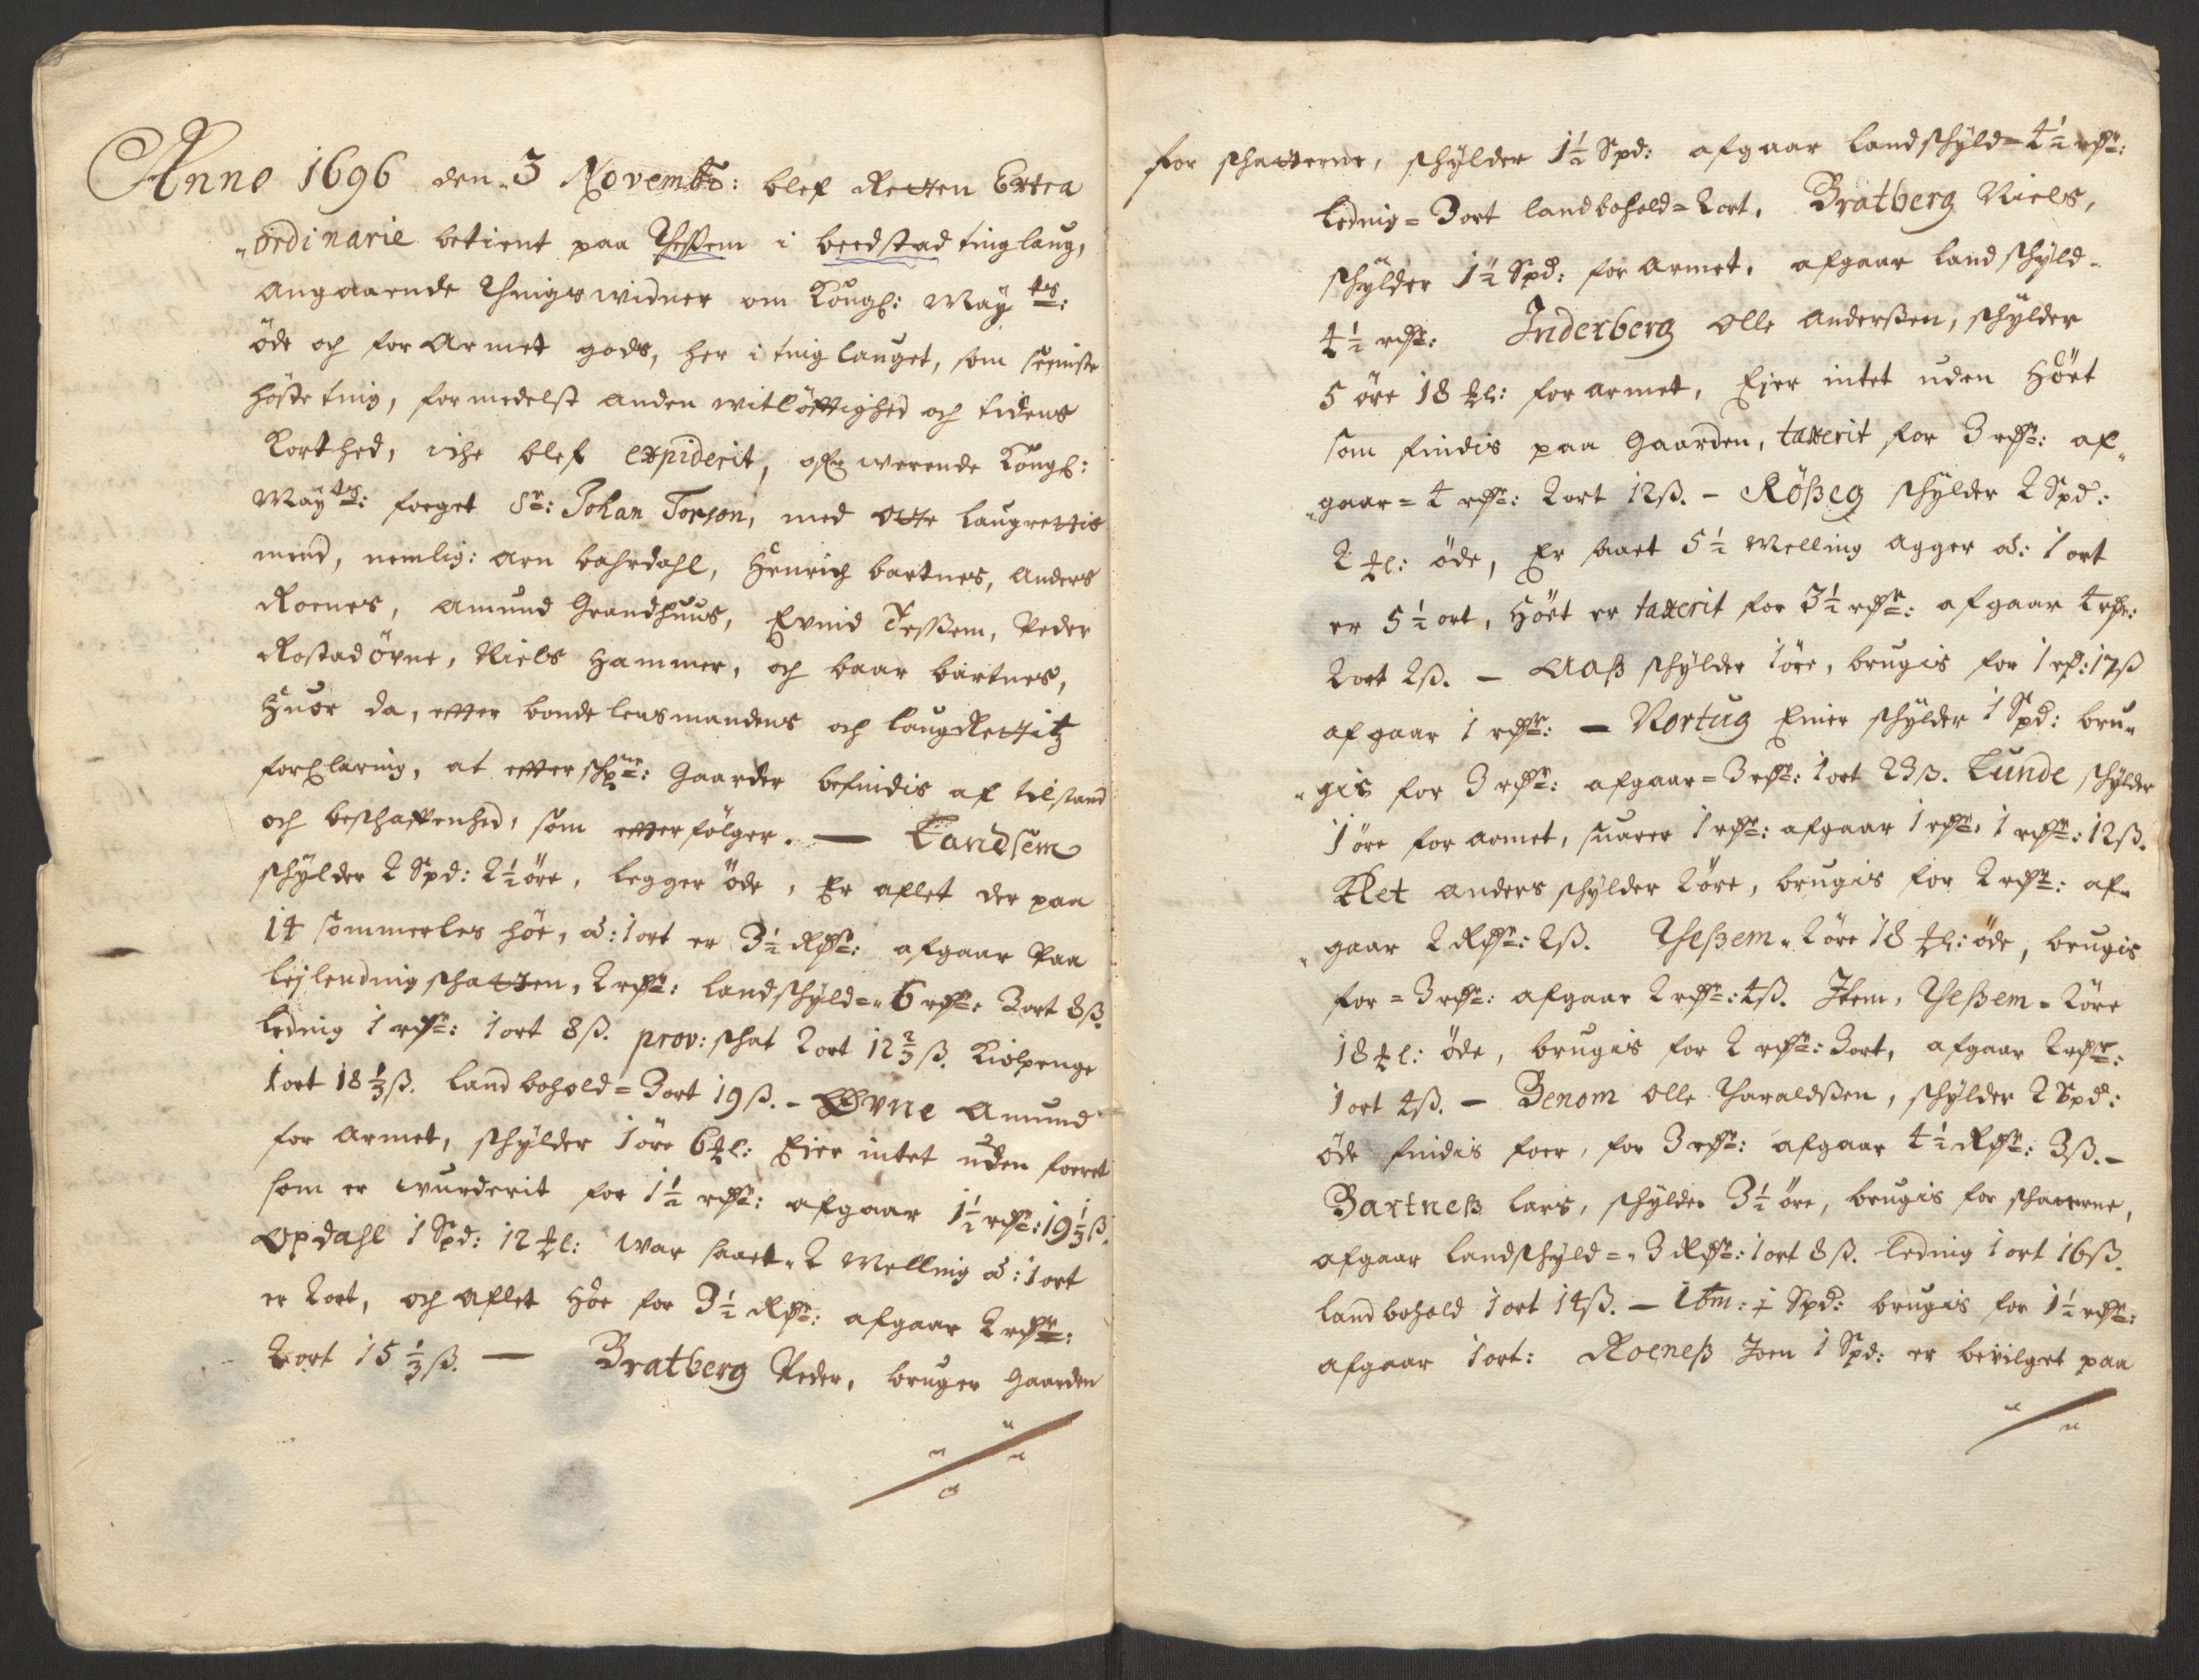 Anno 1696 den 3 Novembr: blef Retten Extra
ordinarie betient paa Thessem i beedstad tinglaug,
angaaende Tingswidner om Kongl: Mayts:
öde och forarmet gods, her i tinglauget, som seeniste
höste ting, formedelst anden witlöfftighed och tidens
Korthed, iche blef expiderit, offwerwerende Kongl:
Mayts: foeget Sr: Johan Torson, med otte laugrettis
mend, nemlig: Arn bahrdahl, Henrich bartnes, Anders
Roenes, Amund Grandhuus, Evind Tessem, Peder
Rostadövne, Niels Hammer, och baar bartnes,
Huor da, effter bondelensmandens och laugRettitz
forklaring, at efftersch:ne: gaarder befindis af tilstand
och beschaffenhed, som effterfölger. — Landsem
schylder 2 Spd: 2½ öre, legger öde, Er aflet der paa
14 sommerles höe, a: 1 ort er 3½ Rdr: afgaar paa
leylending schatten, 2 rdr: landschyld = 6 rdr: 3 ort 8 ß.
leding 1 rdr: 1 ort 8 ß. prov: schat 2 ort 12⅔ ß. Kiolpenge
1 ort 18⅓ ß. landbohold = 3 ort 19 ß. - Øvne Amund
forarmet, schylder 1 öre 6 ℔l: Ejer intet uden foeret
som er wurderit for 1½ rdr: afgaar 1½ rdr: 19⅓ ß.
Opdahl 1 Spd: 12 ℔l: war saaet 2 Melling a: 1 ort
er 2 ort, och aflet Höe for 3½ Rdr: afgaar 2 rdr:
2 ort 15⅓ ß. — Bratberg Peder, bruger gaarden
for schatterne, schylder 1½ Spd: afgaar landschyld = 4½ rdr:
leding = 3 ort landbohold = 2 ort. Bratberg Niels,
schylder 1½ Spd: forarmet, afgaar landschyld
4½ rdr: Inderberg Olle Anderßen, schylder
5 öre 18 ℔l: forarmet, Ejer intet uden Höet
som findis paa gaarden, taxerit for 3 rdr: af
gaar = 4 rdr: 2 ort 12 ß. - Rößeg schylder 2 Spd:
2 ℔l: öde, Er saaet 5½ Melling agger a: 1 ort
er 5½ ort, Höet er taxerit for 3½ rdr: afgaar 4 rdr:
2 ort 2 ß. — Aaß schylder 1 öre, brugis for 1 rd: 17 ß
afgaar 1 rdr: — Nortug Einer schylder 1 Spd: bru
gis for 3 rdr: afgaar = 3 rdr: 1 ort 23 ß. Lunde schylder
1 öre forarmet, suarer 1 rdr: afgaar 1 rdr: 1 rdr: 12 ß.
Klet Anders schylder 2 öre, brugis for 2 rdr: af
gaar 2 Rdr: 2 ß. Theßem 2 öre 18 ℔l: öde, brugis
for = 3 rdr: afgaar 2 rdr: 4 ß. Item, Theßem 2 öre
18 ℔l: öde, brugis for 2 rdr: 3 ort, afgaar 2 rdr:
1 ort 4 ß. — Benom Olle Tharaldßen, schylder 2 Spd:
öde findis foer, for 3 rdr: afgaar 4½ Rdr: 3 ß. -
Bartneß Lars, schylder 3½ öre, brugis for schatterne,
afgaar landschyld = 3 Rdr: 1 ort 8 ß. leding 1 ort 16 ß.
landbohold 1 ort 14 ß. — Itm: ½ Spd: brugis for 1½ rdr:
afgaar 1 ort: Roeneß Joen 1 Spd: er bevilget paa